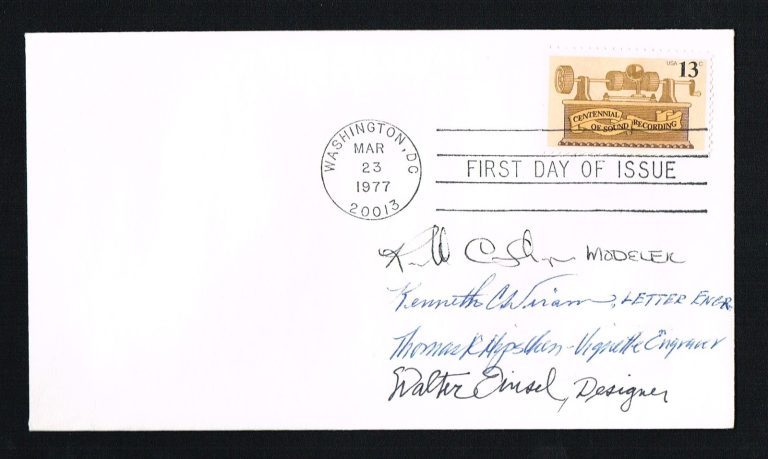 USA 13c
CENTENNIAL
OF SOUND RECORDING
WASHINGTON, DC
MAR
23
1977
20013
FIRST DAY OF ISSUE
MODELER
Kenneth C. Wiram, LETTER ENGR.
Thomas R. Hipschen - Vignette Engraver
Walter Einsel, Designer